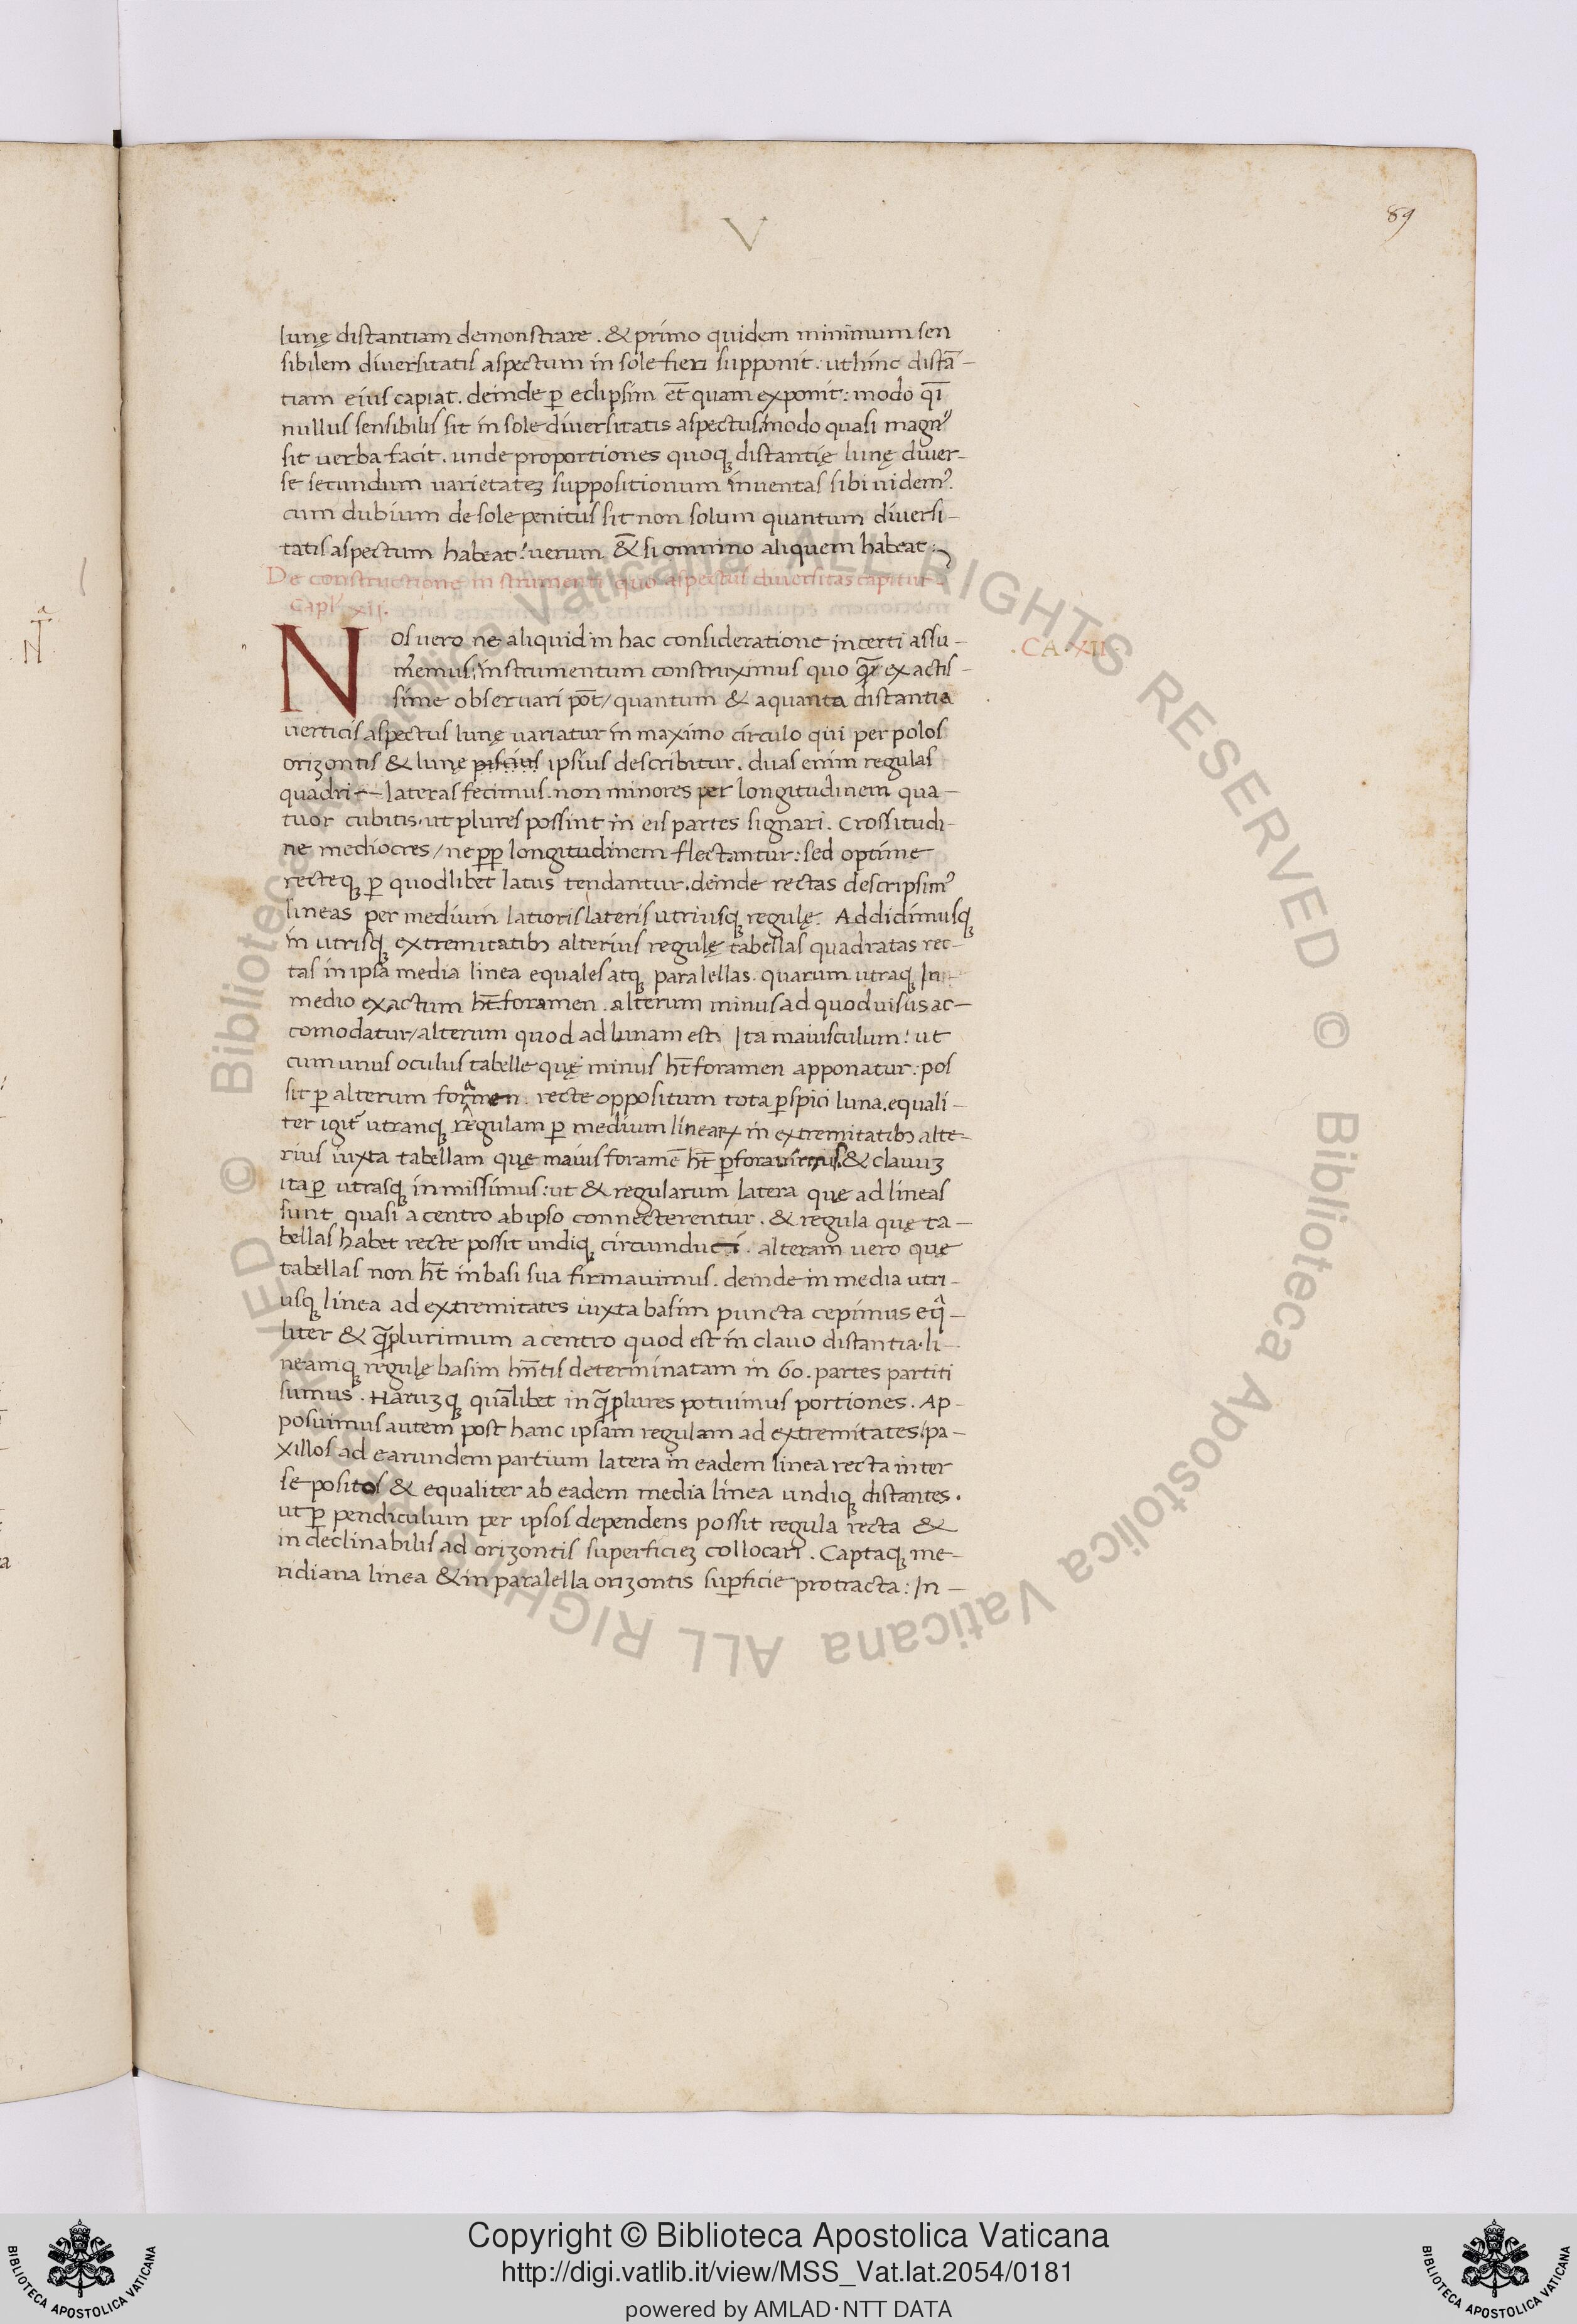 V
89
lunę distantiam demonstrare. & primo quidem minimum sen
sibilem diversitatis aspectum in sole fieri supponit. ut hinc distā-
tiam eius capiat. deinde ꝑ eclipsim et̄ quam exponit: modo qͥ
nullus sensibilis sit in sole diversitatis aspectus: modo quasi magnꝰ
sit verba facit. unde proportiones quoqꝫ distantię lunę diver-
se secundum varietateꝫ suppositionum inventas sibi videmꝰ.
cum dubium de sole penitus sit non solum quantum diversi-
tatis aspectum habeat: verum & si omnino aliquem habeat:
De constructione instrumenti quo aspectus diversitas capitur.
capl. xii.
Nos vero ne aliquid in hac consideratione incerti assu-
memus: instrumentum construximus quo exactis-
sime observari pōt/ quantum & a quanta distantia
verticis aspectus lunę variatur in maximo circulo qui per polos
orizontis & lunę ipsius describitur. duas enim regulas
quadri--lateras fecimus. non minores per longitudinem qua-
tuor cubitis. ut plures possint in eis partes signari. Crossitudi-
ne mediocres/ ne ꝓꝑ longitudinem flectantur: sed optime
recteqꝫ ꝑ quodlibet latus tendantur. deinde rectas descripsimꝰ
lineas per medium latioris lateris utriusqꝫ regulę. Addidimusqꝫ
in utrisqꝫ extremitatibꝫ alterius regulę tabellas quadratas rec-
tas in ipsa media linea equales atqꝫ paralellas. quarum utraqꝫ In
medio exactum ht̄ foramen. alterum minus ad quod visus ac-
comodatur/ alterum quod ad lunam est. Ita maiusculum: ut
cum unus oculus tabelle quę minus ht̄ foramen apponatur: pos
sit ꝑ alterum foramen recte oppositum tota ꝑspici luna. equali-
ter igit̄ utranqꝫ regulam ꝑ medium linearꝝ in extremitatibꝫ alte-
rius iuxta tabellam quę maius foramē ht̄ ꝑforavimus. & clavuꝫ
ita ꝑ utrasqꝫ inmissimus: ut & regularum latera que ad lineas
sunt quasi a centro ab ipso connecterentur. & regula quę ta-
bellas habet recte possit undiqꝫ circunduci. alteram vero quę
tabellas non ht̄ in basi sua firmavimus. deinde in media utri-
usqꝫ linea ad extremitates iuxta basim puncta cepimus eqͣ-
liter & qͣꝫplurimum a centro quod est in clavo distantia. li-
neamqꝫ regulę basim hn̄tis determinatam in 60. partes partiti
sumus. Haruꝫqꝫ quālibet in qͣꝫplures potuimus portiones. Ap-
posuimus autem post hanc ipsam regulam ad extremitates: pa-
xillos ad earundem partium latera in eadem linea recta inter
se positos & equaliter ab eadem media linea undiqꝫ distantes.
ut ꝑ pendiculum per ipsos dependens possit regula recta &
in declinabilis ad orizontis superficieꝫ collocari. Captaqꝫ me-
ridiana linea & in paralella orizontis suꝑficie protracta: In-
.CA.XII.
Copyright © Biblioteca Apostolica Vaticana
http://digi.vatlib.it/view/MSS_Vat.lat.2054/0181
powered by AMLAD·NTT DATA
BIBLIOTECA APOSTOLICA VATICANA
BIBLIOTECA APOSTOLICA VATICANA
© Biblioteca Apostolica Vaticana ALL RIGHTS RESERVED © Biblioteca Apostolica Vaticana ALL RIGHTS RESERVED